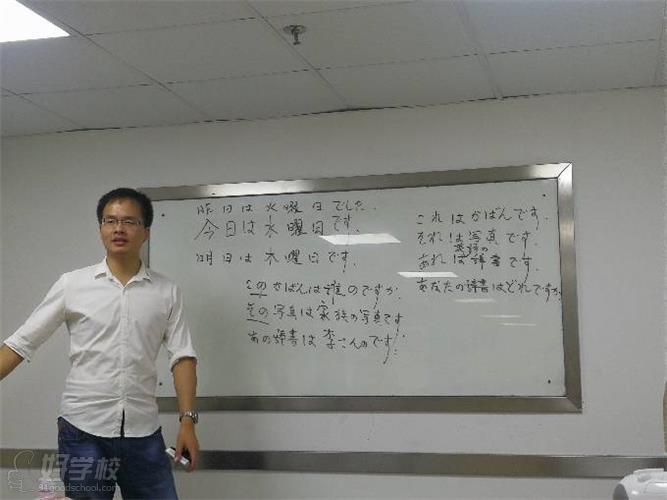 昨日は火曜日でした.
今日は水曜日です.
明日は木曜日です.
このかばんは誰のですか.
その写真は家族の写真です
あの辞書は李さんのです.
これはかばんです.
それは写真です.
英語の
あれは辞書です.
あなたの辞書はどれですか.
好学校
91goodschool.com